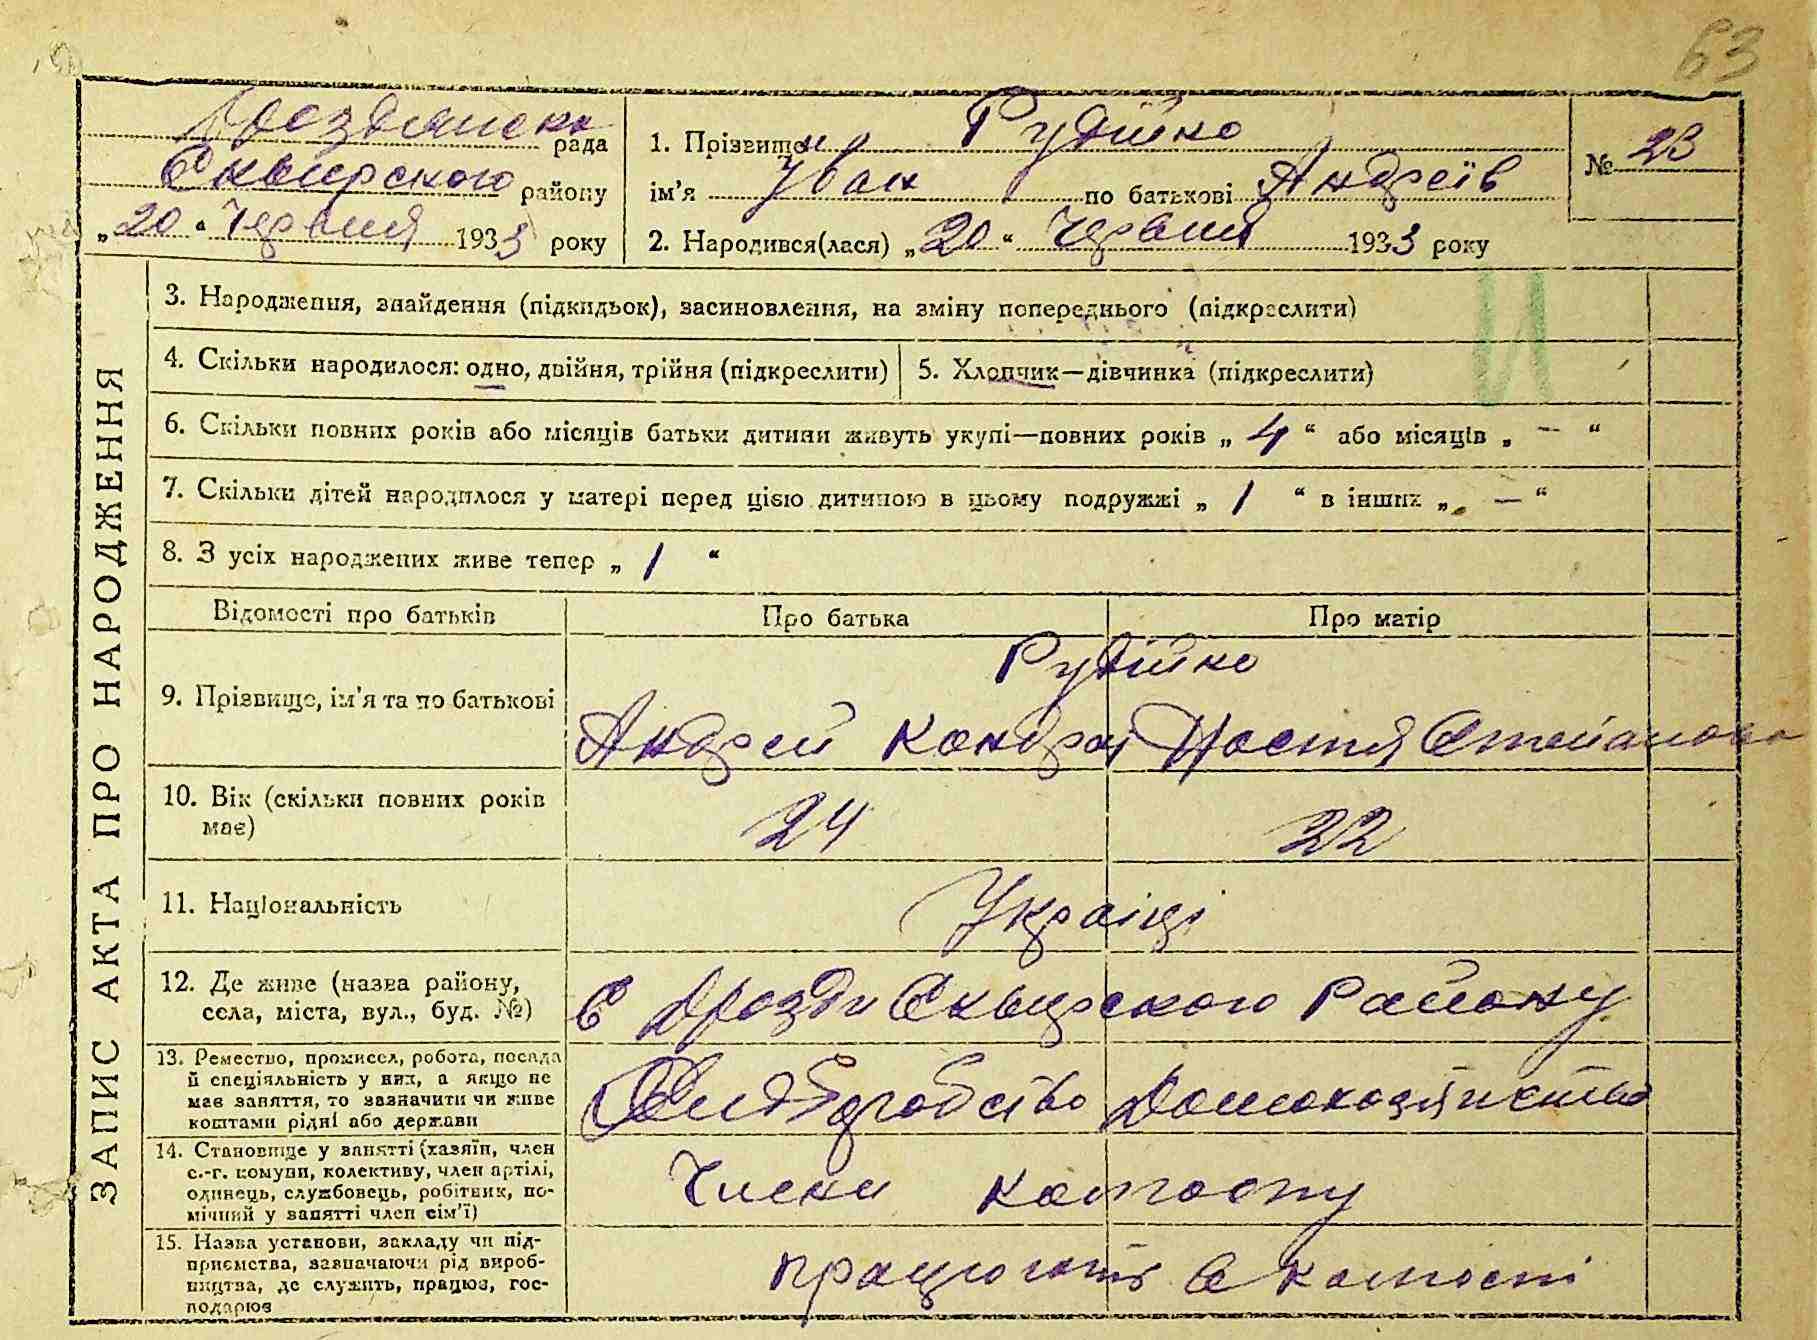 63
Дроздянська рада
Сквирского району
„20“ Червня 1933 року
1. Прізвище Рудійко
ім'я Іван по батькові Андреїв
2. Народився(лася) „20“ Червня 1933 року
№ 23
ЗАПИС АКТА ПРО НАРОДЖЕННЯ
3. Народження, знайдення (підкидьок), засиновлення, на зміну попереднього (підкреслити)
4. Скільки народилося: одно, двійня, трійня (підкреслити)
5. Хлопчик—дівчинка (підкреслити)
6. Скільки повних років або місяців батьки дитини живуть укупі—повних років „ 4 “ або місяців „ – “
7. Скільки дітей народилося у матері перед цією дитиною в цьому подружжі „ 1 “ в інших „ – “
8. З усіх народжених живе тепер „ 1 “
Відомості про батьків
Про батька
Про матір
9. Прізвище, ім'я та по батькові
Рудійко
Андрей Кондрат
Настя Степанова
10. Вік (скільки повних років
має)
24
22
11. Національність
Українці
12. Де живе (назва району,
села, міста, вул., буд. №)
С Дрозди Сквирского Району
13. Ремество, промисел, робота, посада
й спеціяльність у них, а якщо не
має заняття, то зазначити чи живе
коштами рідні або держави
14. Становище у занятті (хазяїн, член
с.-г. комуни, колективу, член артілі,
одинець, службовець, робітник, по-
мічний у занятті член сім'ї)
Члени колгоспу
15. Назва установи, закладу чи під-
приємства, зазначаючи рід вироб-
ництва, де служить, працює, гос-
подарює
працюють в колгоспі